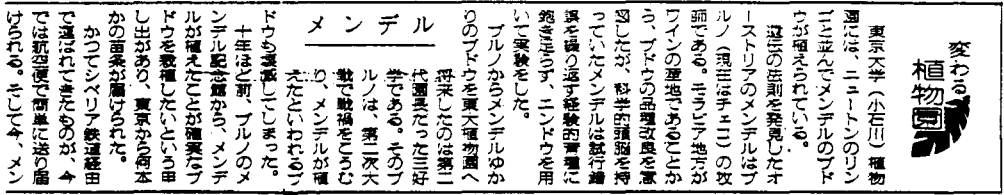 変わる
植物園
東京大学（小石川）植物
園には、ニュートンのリン
ゴと並んでメンデルのブド
ウが植えられている。
遺伝の法則を発見したオ
ーストリアのメンデルはブ
ルノ（現在はチェコ）の牧
師である。モラビア地方が
ワインの産地であることか
ら、ブドウの品種改良を意
図したが、科学的頭脳を持
っていたメンデルは試行錯
誤を繰り返す経験的育種に
飽き足らず、エンドウを用
いて実験をした。
ブルノからメンデルゆか
りのブドウを東大植物園へ
メンデル
将来したのは第二
代園長だった三好
学である。そのブ
ルノは、第二次大
戦で戦禍をこうむ
り、メンデルが植
えたといわれるブ
ドウも壊滅してしまった。
十年ほど前、ブルノのメ
ンデル記念館から、メンデ
ルが植えたことが確実なブ
ドウを移植したいという申
し出があり、東京から何本
かの苗条が届けられた。
かつてシベリア鉄道経由
で運ばれてきたものが、今
では航空便で簡単に送り届
けられる。そして今、メン